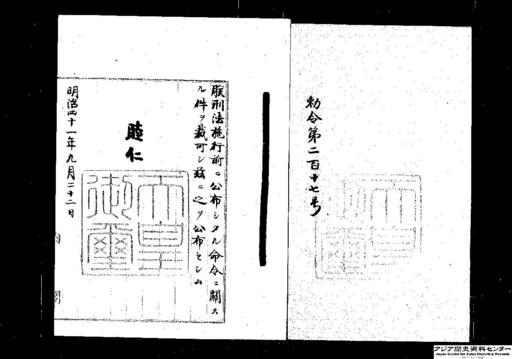 勅令第二百十七号
朕刑法施行前ニ公布シタル命令ニ関ス
ル件ヲ裁可シ茲ニ之ヲ公布セシム
睦仁
天皇御璽
明治四十一年九月二十二日
内閣
アジア歴史資料センター
Japan Center for Asian Historical Records